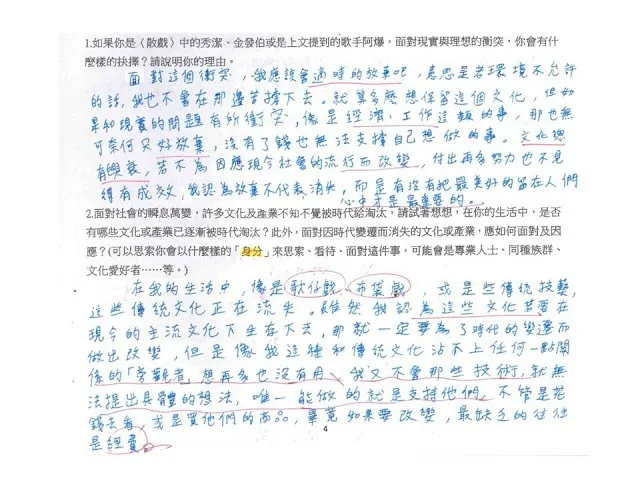 1.如果你是〈散戲〉中的秀潔、金發伯或是上文提到的歌手阿爆，面對現實與理想的衝突，你會有什
麼樣的抉擇？請說明你的理由。
面對這個衝突，我應該會適時的放棄吧，意思是若環境不允許
的話，我也不會在那邊苦撐下去。就算多麼想保留這個文化，但如
果和現實的問題有所衝突，像是經濟、工作這類的事，那也無
可奈何只好放棄，沒有了錢也無法支撐自己想做的事。文化總
有興衰，若不為因應現今社會的流行而改變，付出再多努力也不見
得有成效，我認為放棄不代表消失，而是有沒有把最美好的留在人們
心中才是最重要的。
2.面對社會的瞬息萬變，許多文化及產業不知不覺被時代給淘汰，請試著想想，在你的生活中，是否
有哪些文化或產業已逐漸被時代淘汰？此外，面對因時代變遷而消失的文化或產業，應如何面對及因
應？(可以思索你會以什麼樣的「身分」來思索、看待、面對這件事，可能會是專業人士、同種族群、
文化愛好者……等。)
在我的生活中，像是歌仔戲、布袋戲，或是些傳統技藝，
這些傳統文化正在流失。雖然我認為這些文化若要在
現今的主流文化下生存下去，那就一定要為了時代的變遷而
做出改變，但是像我這種和傳統文化沾不上任何一點關
係的「旁觀者」想再多也沒有用，我又不會那些技術，就無
法提出具體的想法，唯一能做的就是支持他們，不管是花
錢去看，或是買他們的商品，畢竟如果要改變，最缺乏的往往
是經費。
4